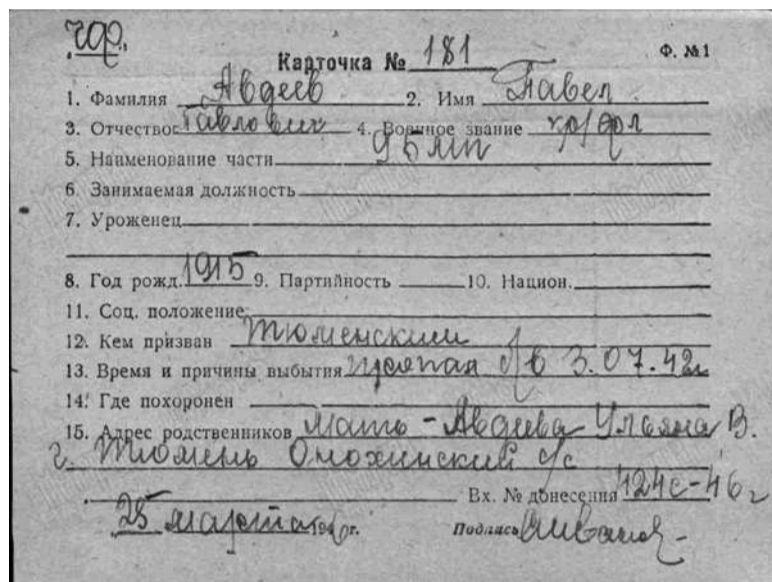 Карточка № 181 Ф. №1
1. Фамилия Авдеев 2. Имя Павел
3. Отчество Павлович 4. Военное звание кр/фл
5. Наименование части 95 мп
6. Занимаемая должность
7. Уроженец
8. Год рожд. 1915 9. Партийность 10. Национ.
11. Соц. положение
12. Кем призван Тюменский
13. Время и причины выбытия пропал б/в 3.07.42г
14. Где похоронен
15. Адрес родственников Мать - Авдеева Ульяна В.
г. Тюмень Онохинский с/с
Вх. № донесения 124с-46г
25 марта 194 г. Подпись